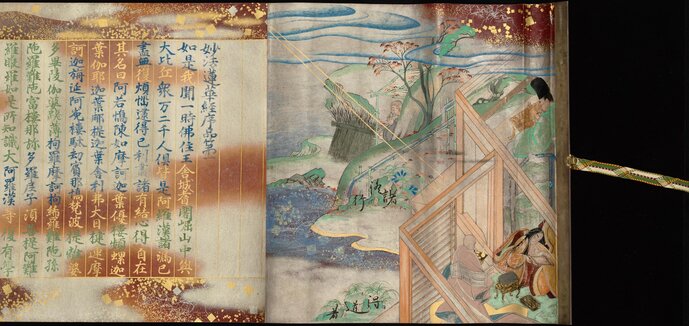 諸
修
行
得道者
妙法蓮華經序品第一
如是我聞一時佛住王舍城耆闍崛山中與
大比丘衆万二千人俱皆是阿羅漢諸漏已
盡無復煩惱逮得己利盡諸有結心得自在
其名曰阿若憍陳如摩訶迦葉優樓頻螺迦
葉伽耶迦葉那提迦葉舎利弗大目揵連摩
訶迦旃延阿㝹樓馱劫賓那憍梵波提離婆
多畢陵伽婆蹉薄拘羅摩訶拘絺羅難陀孫
陀羅難陀富樓那弥多羅尼子須菩提阿難
羅睺羅如是衆所知識大阿羅漢等復有學